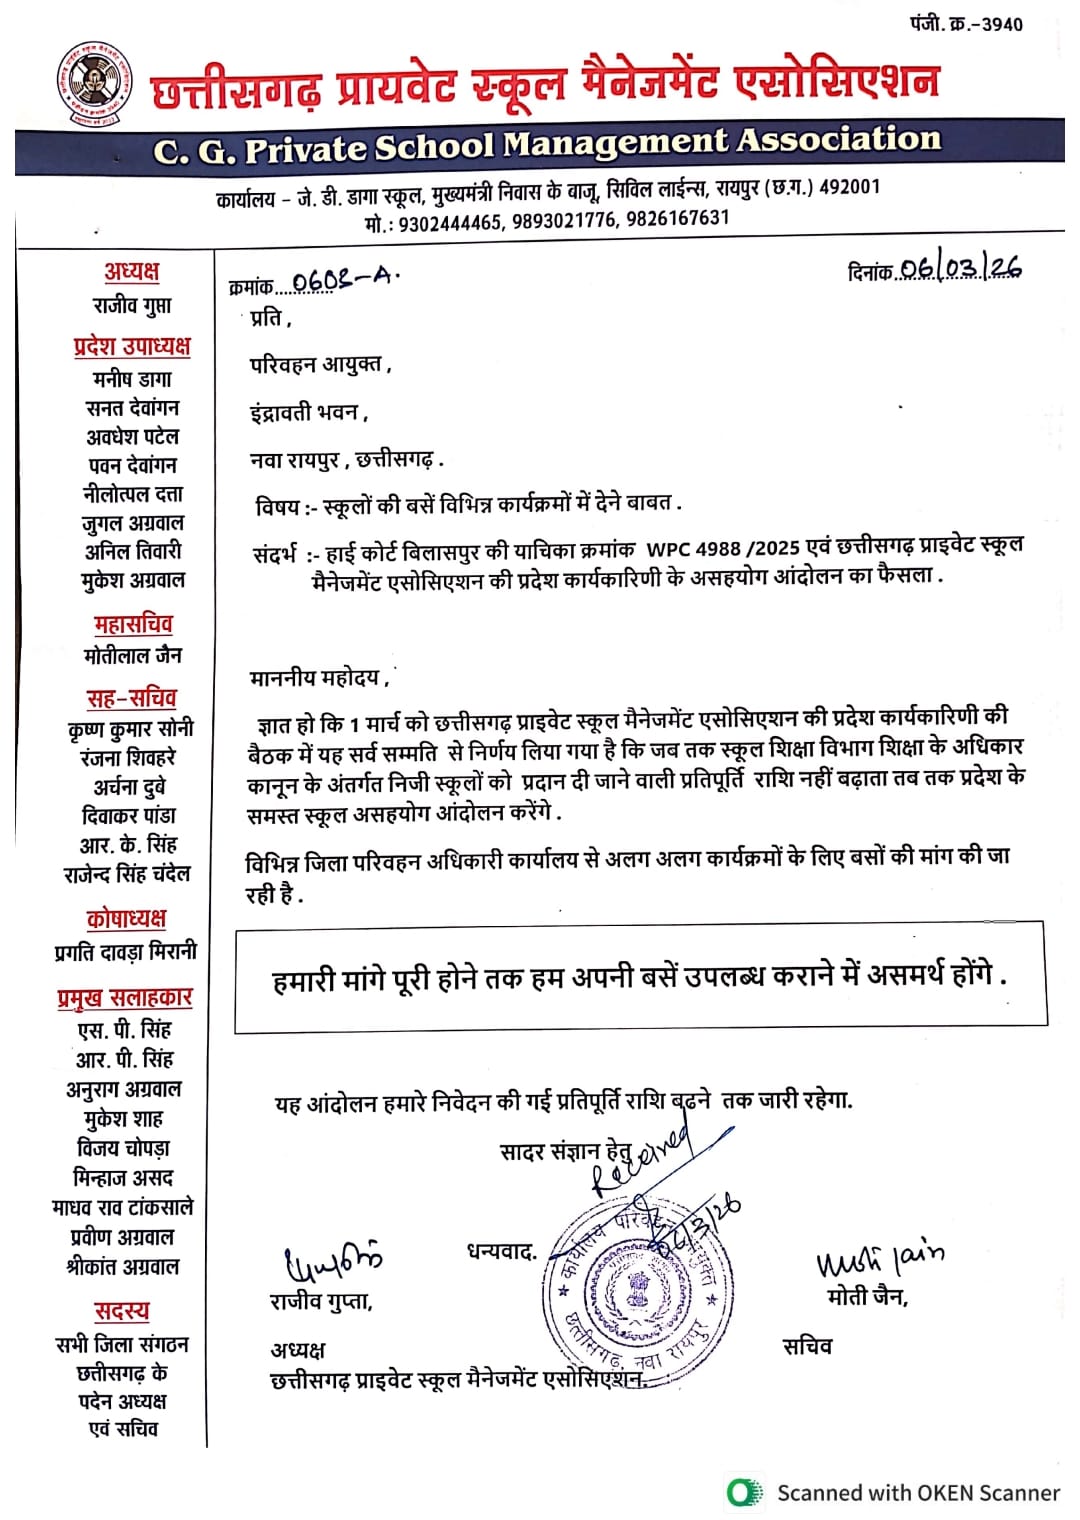 पंजी. क्र.-3940
छत्तीसगढ़ प्रायवेट स्कूल मैनेजमेंट एसोसिएशन
C. G. Private School Management Association
कार्यालय - जे. डी. डागा स्कूल, मुख्यमंत्री निवास के बाजू, सिविल लाईन्स, रायपुर (छ.ग.) 492001
मो.: 9302444465, 9893021776, 9826167631
अध्यक्ष
राजीव गुप्ता
प्रदेश उपाध्यक्ष
मनीष डागा
सनत देवांगन
अवधेश पटेल
पवन देवांगन
नीलोत्पल दत्ता
जुगल अग्रवाल
अनिल तिवारी
मुकेश अग्रवाल
महासचिव
मोतीलाल जैन
सह-सचिव
कृष्ण कुमार सोनी
रंजना शिवहरे
अर्चना दुबे
दिवाकर पांडा
आर. के. सिंह
राजेन्द सिंह चंदेल
कोषाध्यक्ष
प्रगति दावड़ा मिरानी
प्रमुख सलाहकार
एस. पी. सिंह
आर. पी. सिंह
अनुराग अग्रवाल
मुकेश शाह
विजय चोपड़ा
मिन्हाज असद
माधव राव टांकसाले
प्रवीण अग्रवाल
श्रीकांत अग्रवाल
सदस्य
सभी जिला संगठन
छत्तीसगढ़ के
पदेन अध्यक्ष
एवं सचिव
क्रमांक....0608-A.
दिनांक..06/03/26
प्रति ,
परिवहन आयुक्त ,
इंद्रावती भवन ,
नवा रायपुर , छत्तीसगढ़ .
विषय :- स्कूलों की बसें विभिन्न कार्यक्रमों में देने बाबत .
संदर्भ :- हाई कोर्ट बिलासपुर की याचिका क्रमांक WPC 4988 /2025 एवं छत्तीसगढ़ प्राइवेट स्कूल
मैनेजमेंट एसोसिएशन की प्रदेश कार्यकारिणी के असहयोग आंदोलन का फैसला .
माननीय महोदय ,
ज्ञात हो कि 1 मार्च को छत्तीसगढ़ प्राइवेट स्कूल मैनेजमेंट एसोसिएशन की प्रदेश कार्यकारिणी की
बैठक में यह सर्व सम्मति से निर्णय लिया गया है कि जब तक स्कूल शिक्षा विभाग शिक्षा के अधिकार
कानून के अंतर्गत निजी स्कूलों को प्रदान दी जाने वाली प्रतिपूर्ति राशि नहीं बढ़ाता तब तक प्रदेश के
समस्त स्कूल असहयोग आंदोलन करेंगे .
विभिन्न जिला परिवहन अधिकारी कार्यालय से अलग अलग कार्यक्रमों के लिए बसों की मांग की जा
रही है .
हमारी मांगे पूरी होने तक हम अपनी बसें उपलब्ध कराने में असमर्थ होंगे .
यह आंदोलन हमारे निवेदन की गई प्रतिपूर्ति राशि बढने तक जारी रहेगा.
सादर संज्ञान हेतु
Received
धन्यवाद.
कार्यालय परिवहन आयुक्त
छत्तीसगढ़, नवा रायपुर
राजीव गुप्ता,
अध्यक्ष
छत्तीसगढ़ प्राइवेट स्कूल मैनेजमेंट एसोसिएशन.
Moti Jain
मोती जैन,
सचिव
Scanned with OKEN Scanner